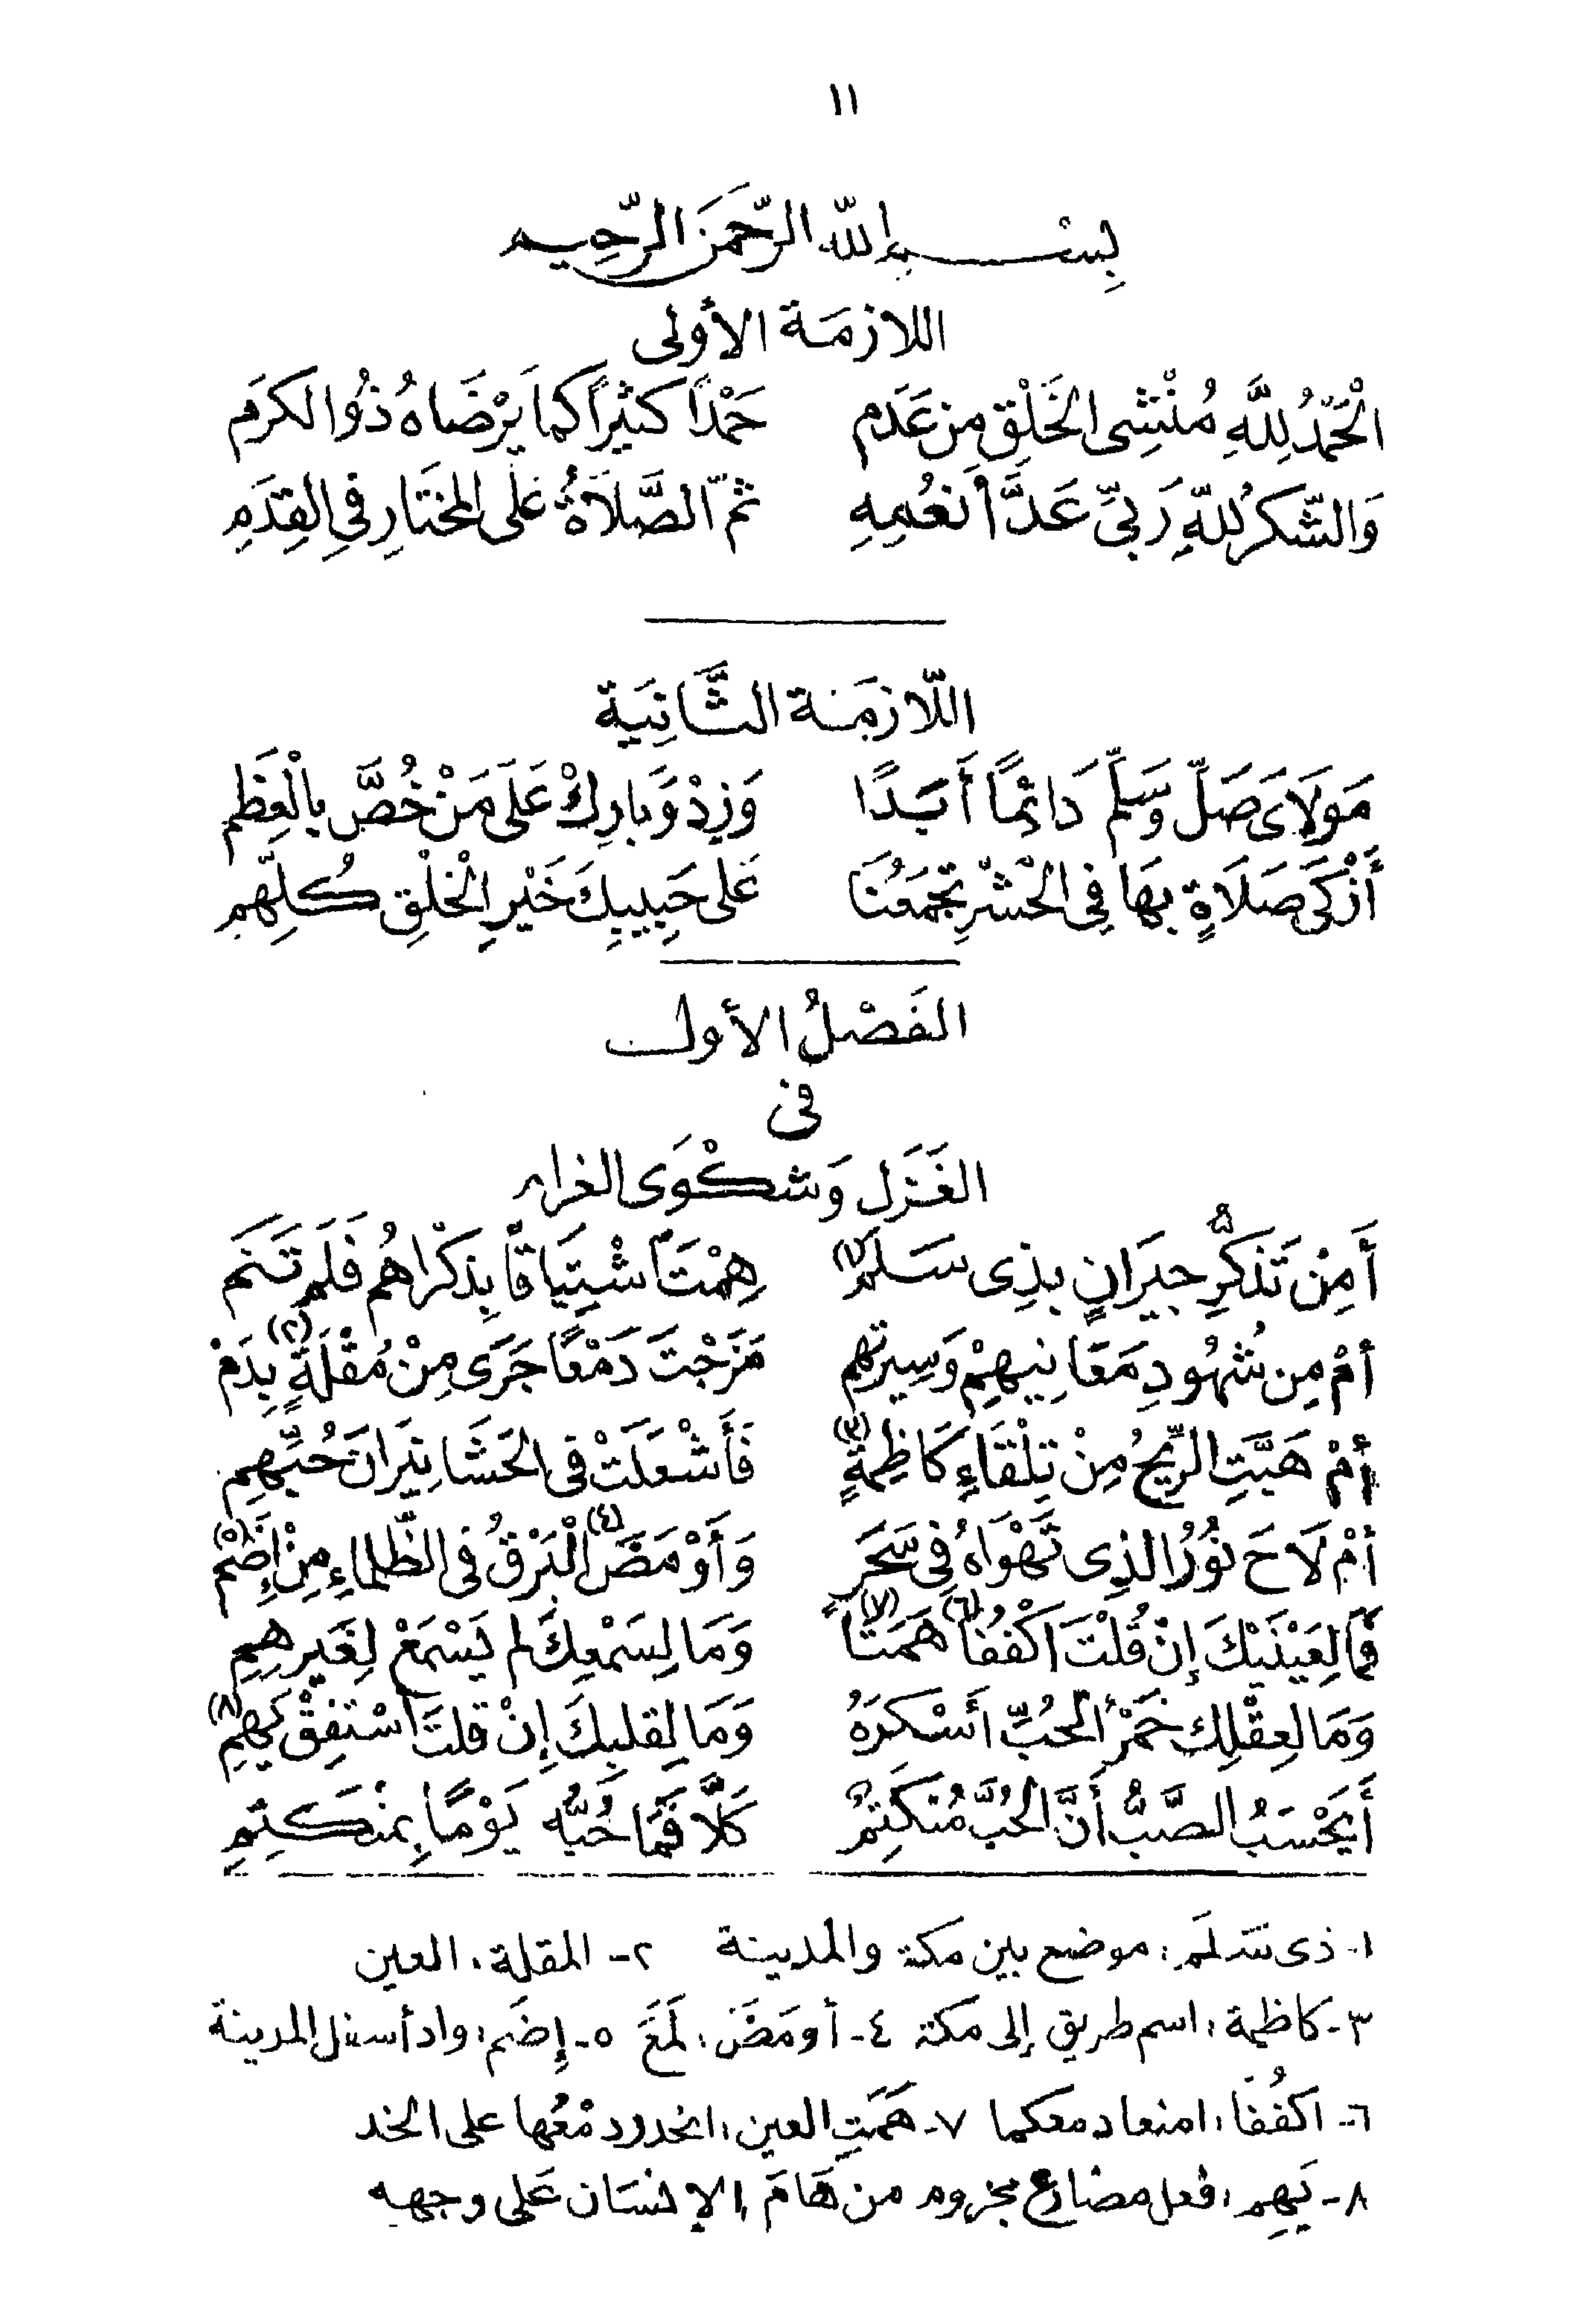 ١١
بِسْمِ اللهِ الرَّحْمَنِ الرَّحِيمِ
اللازمَة الأُولى
الْحَمْدُ لِلَّهِ مُنْشِى الخَلْقِ مِن عَدَمِ حَمْدًا كثيرًا كما يَرْضَاهُ ذُو الكرَمِ
وَالشّكرُ لِلّهِ رَبّى عَدَّ أَنعُمِهِ ثمّ الصَّلاَةُ عَلَى المختَارِ فىِ القِدَمِ
اللّازمَة الثَّانِيَة
مَولاَىَ صَلّ وَسَلّم دَائِمًا أَبَدًا وَزِدْ وَبَارِكْ عَلَى مَنْ خُصَّ بِالْعِظَمِ
أَزْكَى صَلاَةٍ بِهَا فِى الْحَشْرِ تجْمَعُنَا عَلى حَبِيبِكَ خَيْرِ الْخَلْقِ كُلِّهِمِ
الفَصْلُ الأول
فى
الغَزَل وَشكْوَى الغرام
أَمِنْ تَذَكُّرِ جيَرانٍ بِذِى سَلَمٍ(١) هِمْتَ اشْتِيَاقًا بِذِكْرَاهُم فَلَم تَنَمِ
أمْ مِن شُهُودِ مَعَانِيهِمْ وَسِيرتِهِم مَزَجْتَ دَمْعًا جَرَى مِنْ مُقْلَةٍ(٢) بِدَمِ
أمْ هَبَّتِ الرِّيحُ مِنْ تِلْقَاءِ كَاظِمَةٍ(٣) فَأَشْعَلَتْ فى الحَشَا نِيَرانَ حُبِّهِمِ
أمْ لاَحَ نُورُ الذِى تَهْوَاهُ فِى سَحَرٍ وَأَوْمَضَ(٤) الْبَرْقُ فى الظَّلماءِ مِنْ إِضَمِ(٥)
فَمَا لِعَيْنَيْكَ إِنْ قُلْتَ اكْفُفَا(٦) هَمَتَا(٧) وَمَا لِسَمْعِكَ لم يَسْمَعْ لِغَيرِهِمِ
وَمَا لعِقْلِك خَمْرُ الحُبِّ أَسْكَرَهُ وَمَا لِقلبِكَ إِنْ قلتَ اسْتَفِقْ يَهِمِ(٨)
أَيَحْسَبُ الصَّبُّ أَنَّ الحُبَّ مُنْكَتِمٌ كَلَّا فَمَا حُبُّه يَوْمًا بِمُنْكَتِمِ
١- ذى سَلَم: موضع بين مكة والمدينة ٢- المقلة: العين
٣- كاظمة: اسم طريق إلى مكة ٤- أومَضَ: لَمَعَ ٥- إِضَم: واد أسفل المدينة
٦- اكفُفَا: امنعا دمعكما ٧- هَمَتِ العين: انحدر دمْعُها على الخد
٨- يَهِم: فعل مضارع مجزوم من هَامَ الإنسَان عَلى وجهه